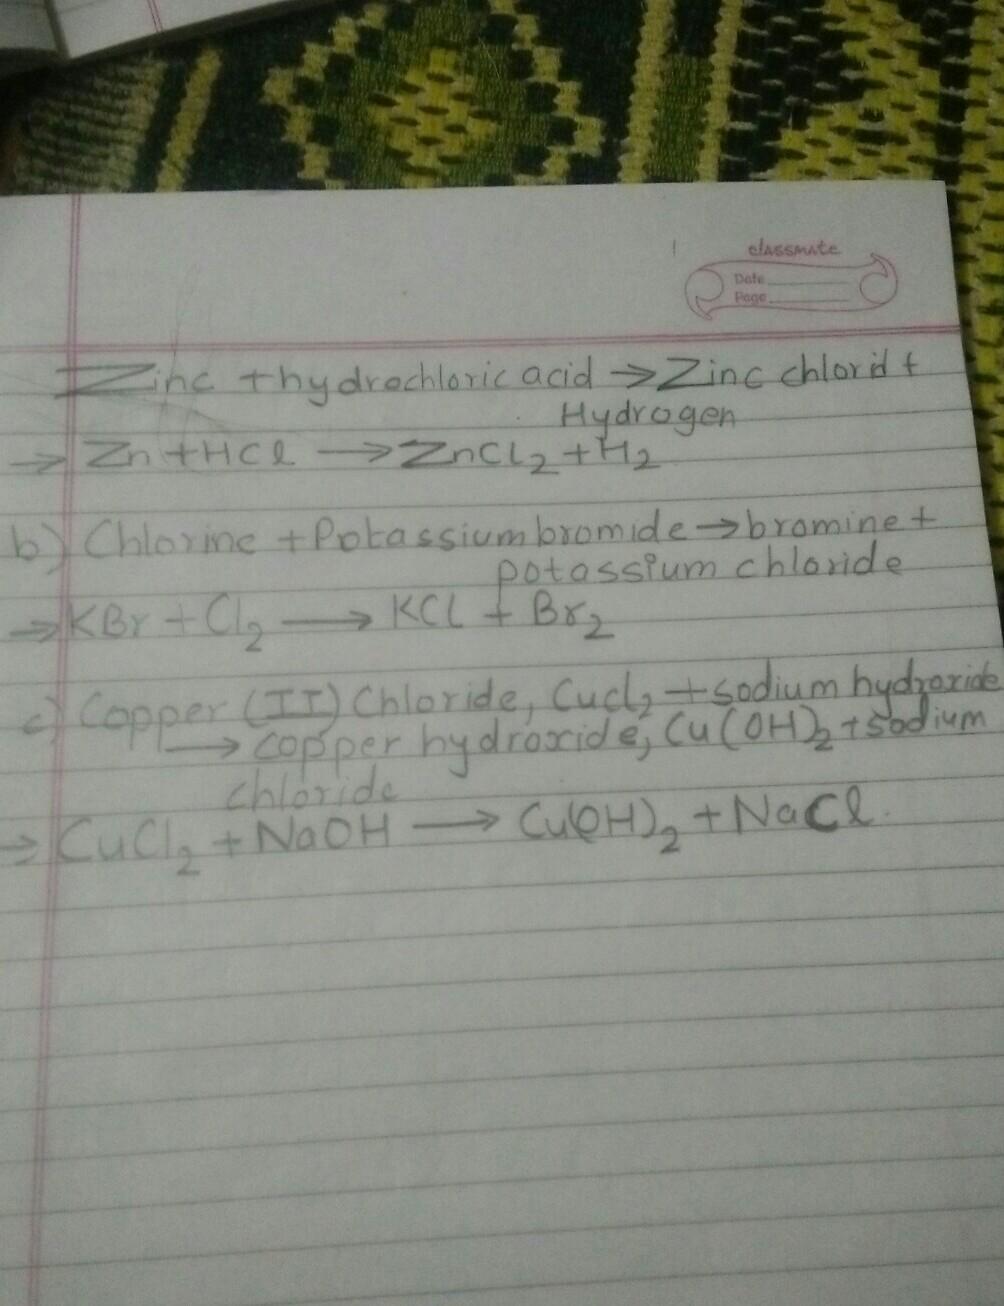 classmate
Date
Page
Zinc + hydrochloric acid → Zinc chlorid +
Hydrogen
→ Zn + HCl → ZnCl2 + H2
b) Chlorine + Potassium bromide → bromine +
potassium chloride
⇒ KBr + Cl2 → KCl + Br2
c) Copper (II) Chloride, CuCl2 + sodium hydroxide
→ copper hydroxide, Cu(OH)2 + sodium
chloride
⇒ CuCl2 + NaOH → Cu(OH)2 + NaCl.